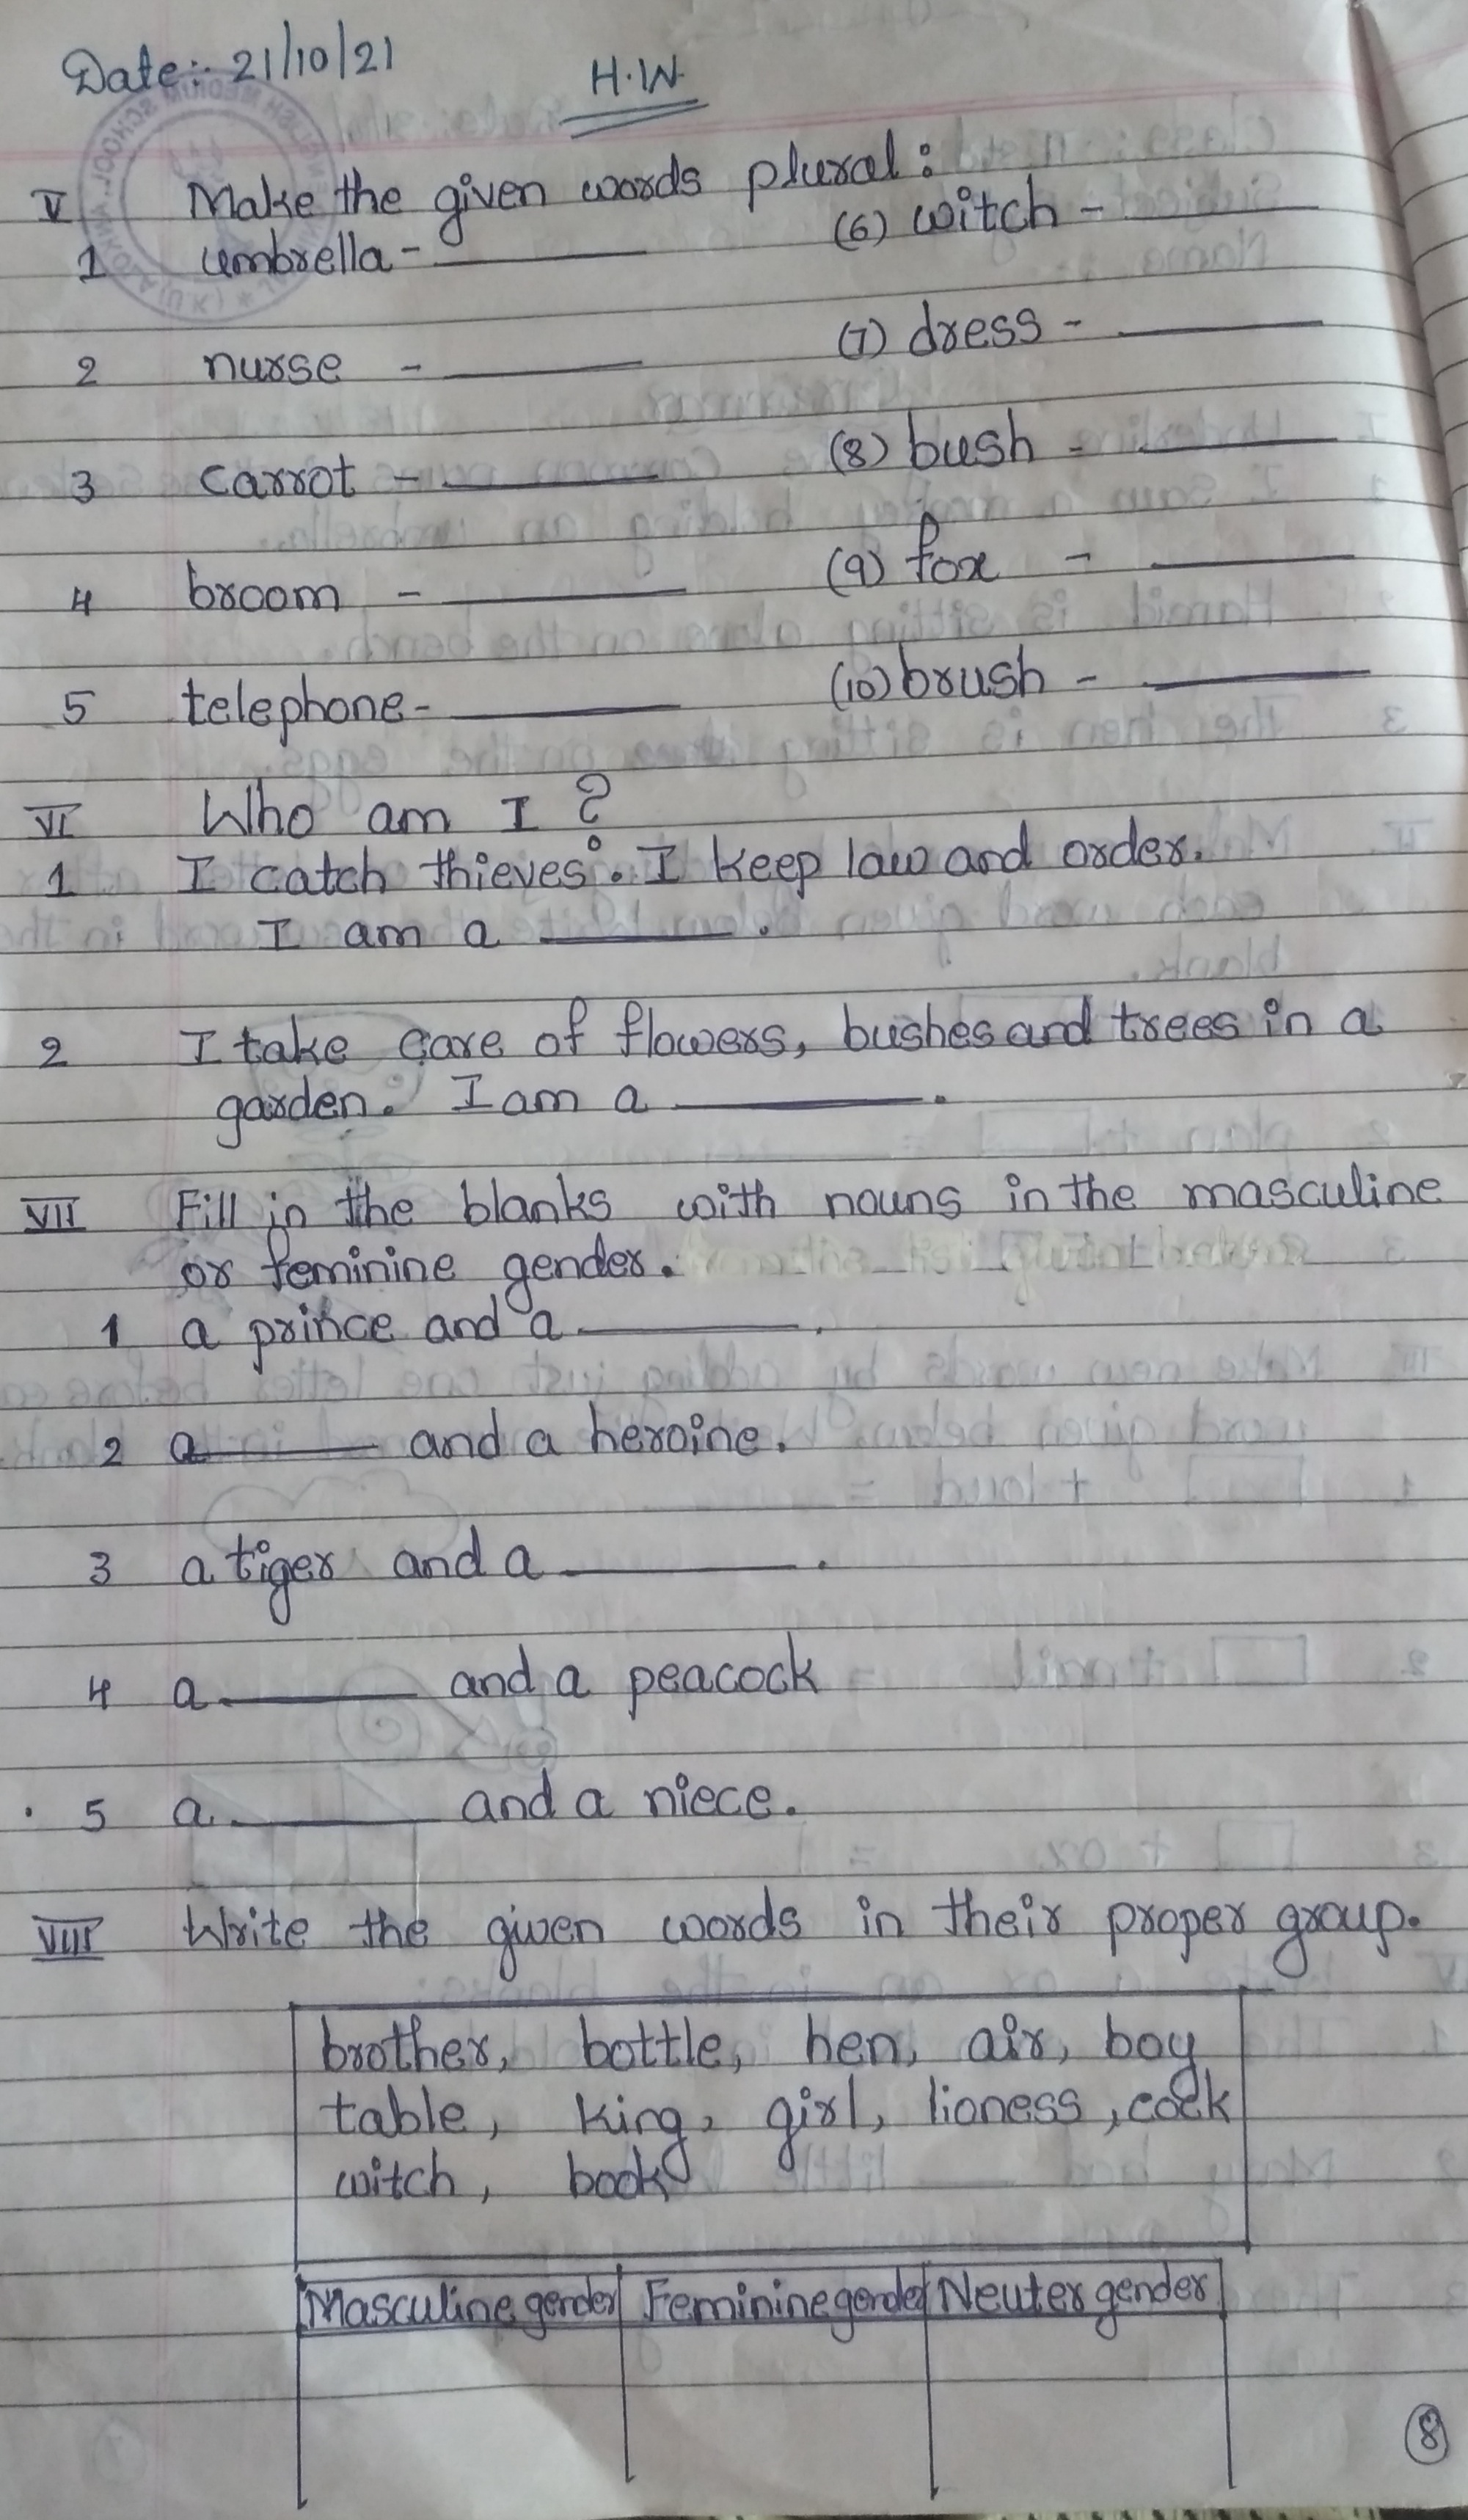 Date:- 21/10/21
H.W.
V Make the given words plural:
1 umbrella - ______ (6) witch - ______
2 nurse - ______ (7) dress - ______
3 carrot - ______ (8) bush - ______
4 broom - ______ (9) fox - ______
5 telephone - ______ (10) brush - ______
VI Who am I ?
1 I catch thieves. I keep law and order.
I am a ______.
2 I take care of flowers, bushes and trees in a
garden. I am a ______.
VII Fill in the blanks with nouns in the masculine
or feminine gender.
1 a prince and a ______.
2 a ______ and a heroine.
3 a tiger and a ______.
4 a ______ and a peacock
5 a ______ and a niece.
VIII Write the given words in their proper group.
brother, bottle, hen, air, boy
table, king, girl, lioness, cock
witch, book
Masculine gender Feminine gender Neuter gender
8